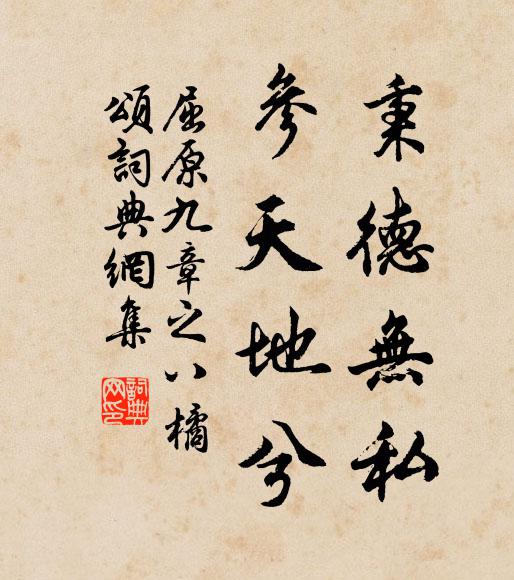 秉德無私
參天地兮
屈原九章之八橘
頌詞典網集
詞典網印